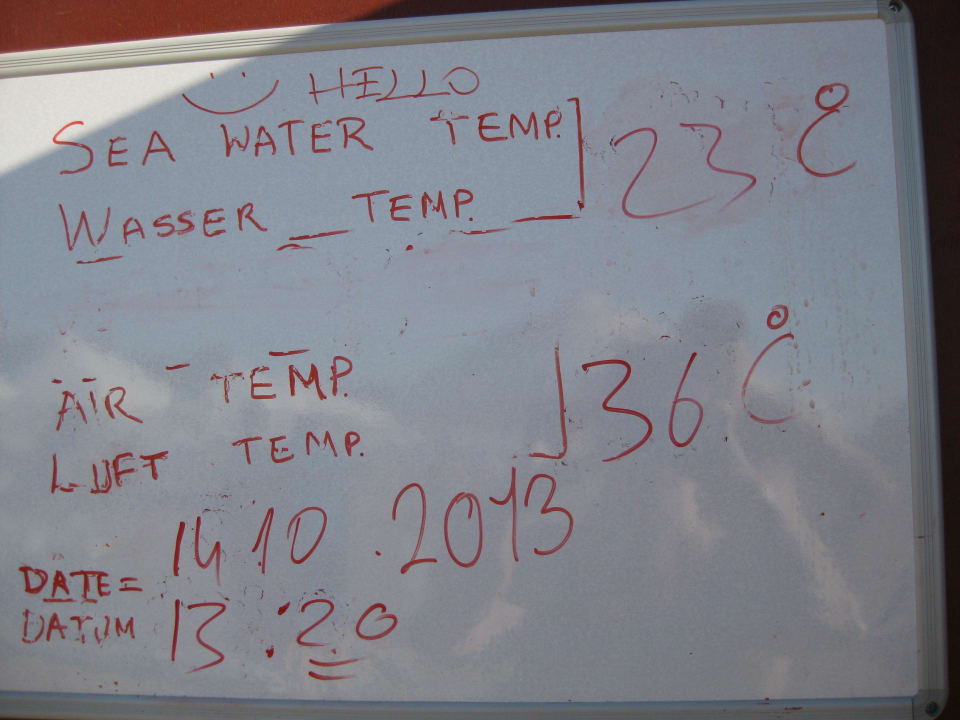 HELLO
SEA WATER TEMP. 23 °C
WASSER TEMP.
AIR TEMP. 36 °C
LUFT TEMP.
14.10.2013
DATE =
DATUM 13:20